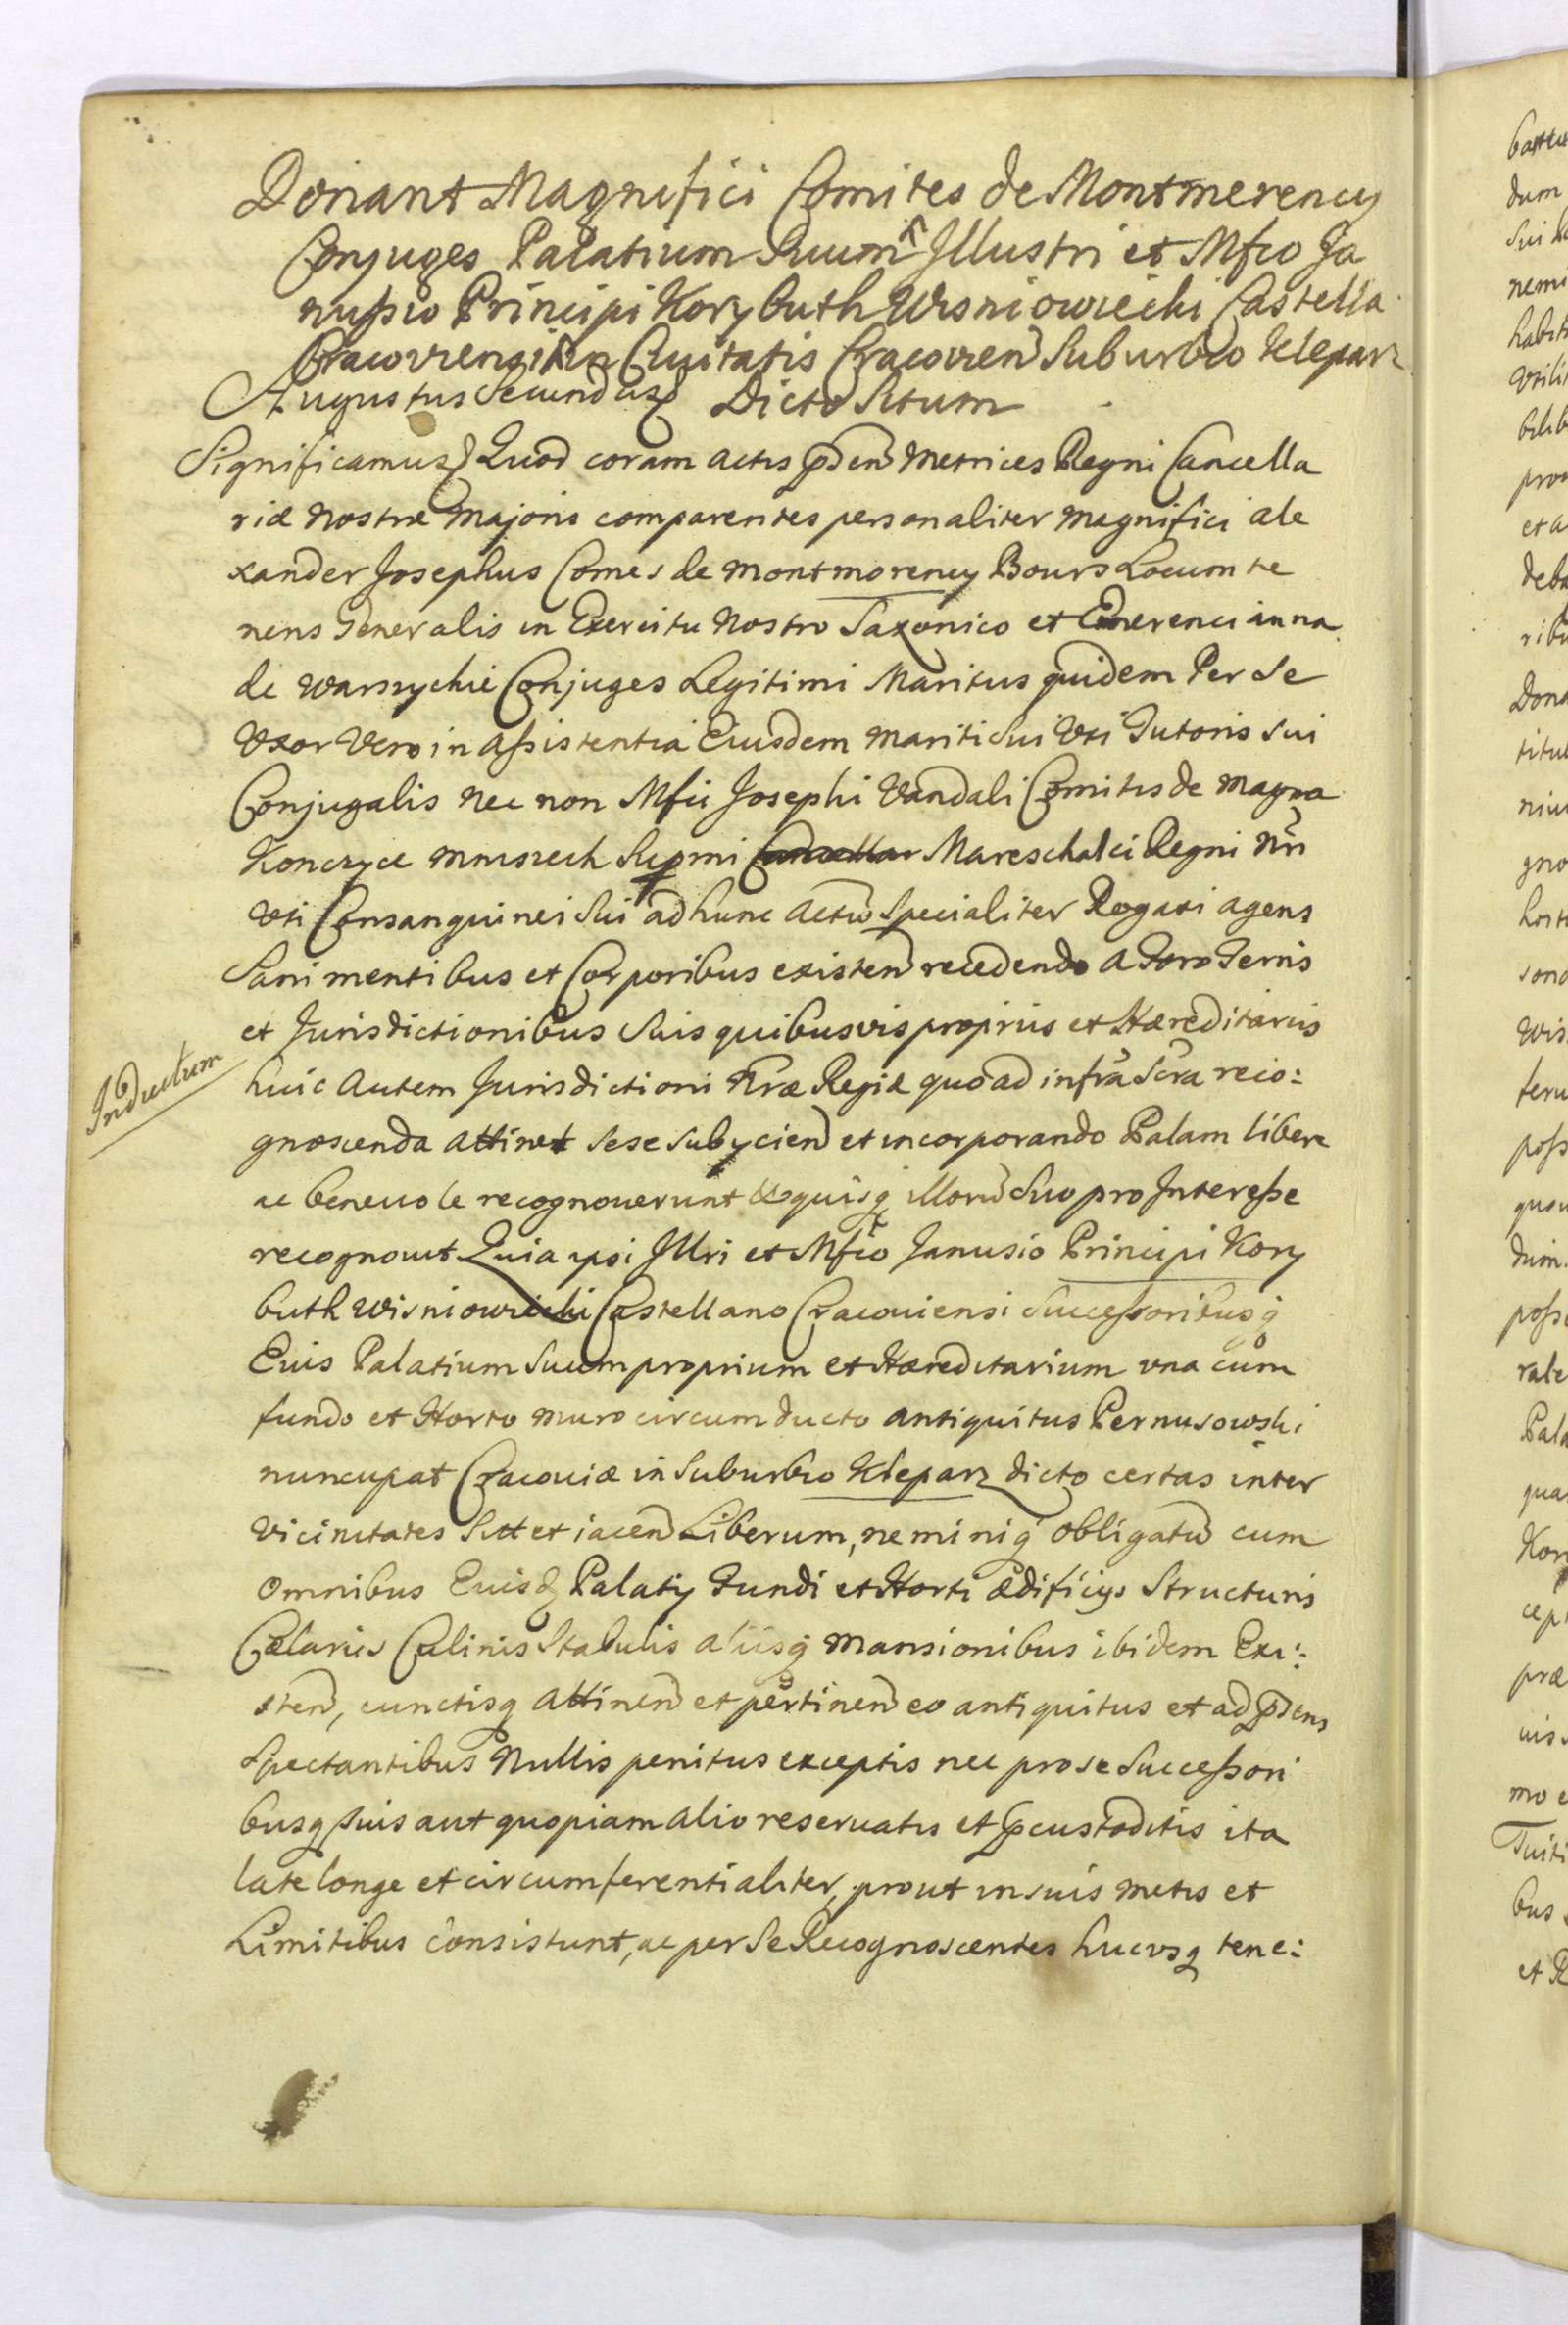 Donant Magnifici Comites de Montmerency
Conjuges Palatium Suum Illustri et Mfco Ja
nussio Principi Korybuth Wisniowiecki Castella
Cracoviensi in Civitatis Cracovien Suburbio Klepar
Augustus Secundus Dicto Situm
Significamus Quod coram actis pden Metrices Regni Cancella
riæ Nostræ Majoris comparentes personaliter Magnifici Ale
xander Josephus Comes de Montmorency Bours Locum te
nens Generalis in Exercitu Nostro Saxonico et Anna
de Warszychie Conjuges Legitimi Maritus quidem Per Se
Uxor Vero in assistentia Eiusdem Mariti Sui Uti Tutoris Sui
Conjugalis nec non Mfci Josephi Vandali Comitis de Magna
Konczyce Mniszech Supmi Mareschalci Regni Nri
uti Consanguinei Sui ad hunc actu Specialiter Rogati agens
Sani mentibus et Corporibus existen recedendo a Foro Terris
et Jurisdictionibus Suis quibusvis proprijs et Hæreditarijs
Inductum
huic autem Jurisdictioni Nræ Regiæ quo ad infra Scra reco:
gnoscenda attinet sese subycien et incorporando Palam libere
ac benevole recognoverunt et quisq illoru Suo pro Interesse
recognovit Quia ipsi Illri et Mfco Janusio Principi Kory
buth Wisniowiecki Castellano Cracoviensi Successoribusq
Eius Palatium Suum proprium et Hæreditarium una cum
fundo et Horto muro circumducto antiquitus Pernusowski
nuncupat Cracoviæ in Suburbio Kleparz dicto certas inter
vicinitates Sitt et iacen Liberum, neminiq obligatu cum
omnibus Eiusd Palaty Fundi et Horti ædificijs Structuris
Cælaris Culinis Stabulis aliisq mansionibus ibidem Exi:
sten, cunctisq attinen et pertinen eo antiquitus et ad pdens
spectantibus Nullis penitus exceptis nec pro se Successori
busq suis aut quopiam alio reservatis et pcustoditis ita
late longe et circumferentialiter, prout in suis metis et
Limitibus consistunt, ac per Se Recognoscentes hucusq tene: